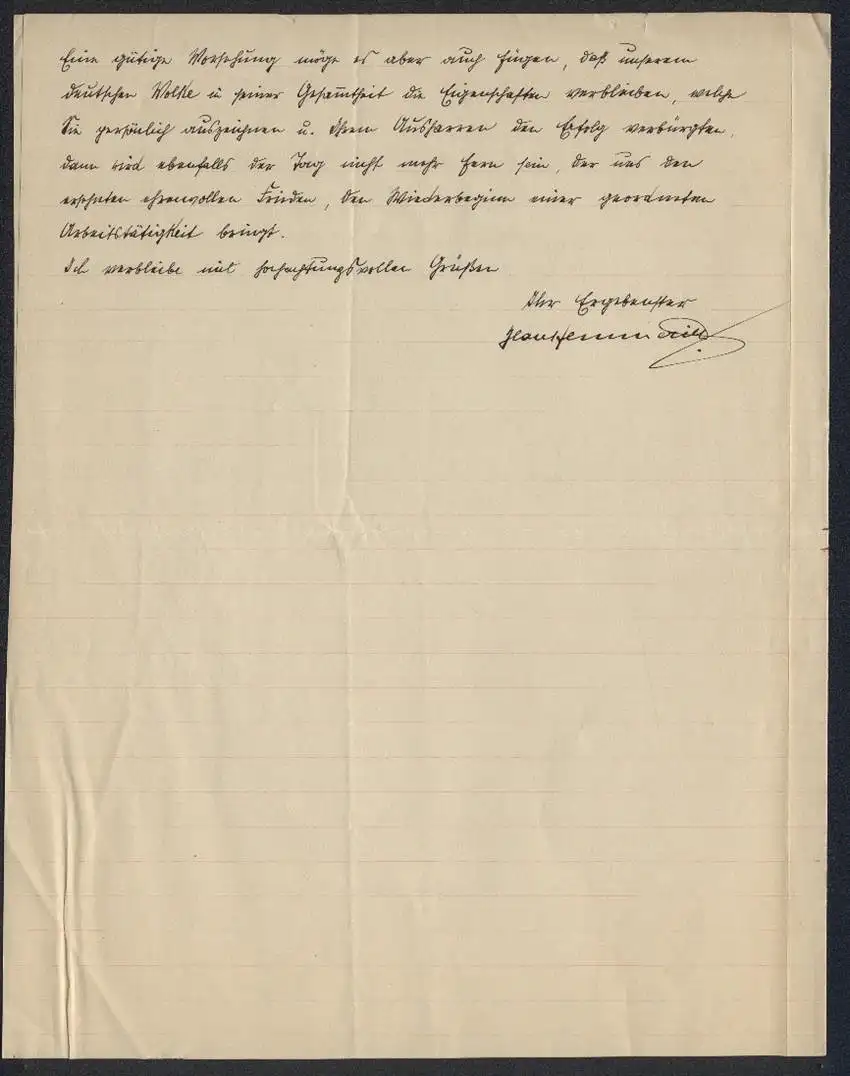 Eine gütige Vorsehung möge es aber auch fügen, daß unserem
deutschen Volke in seiner Gesamtheit die Eigenschaften verbleiben, welche
Sie persönlich auszeichnen u. Ihrem Ausharren den Erfolg verbürgten,
dann wird ebenfalls der Tag nicht mehr fern sein, der uns den
ersehnten ehrenvollen Frieden, den Wiederbeginn einer geordneten
Arbeitstätigkeit bringt.
Ich verbleibe mit hochachtungsvollen Grüßen
Ihr Ergebenster